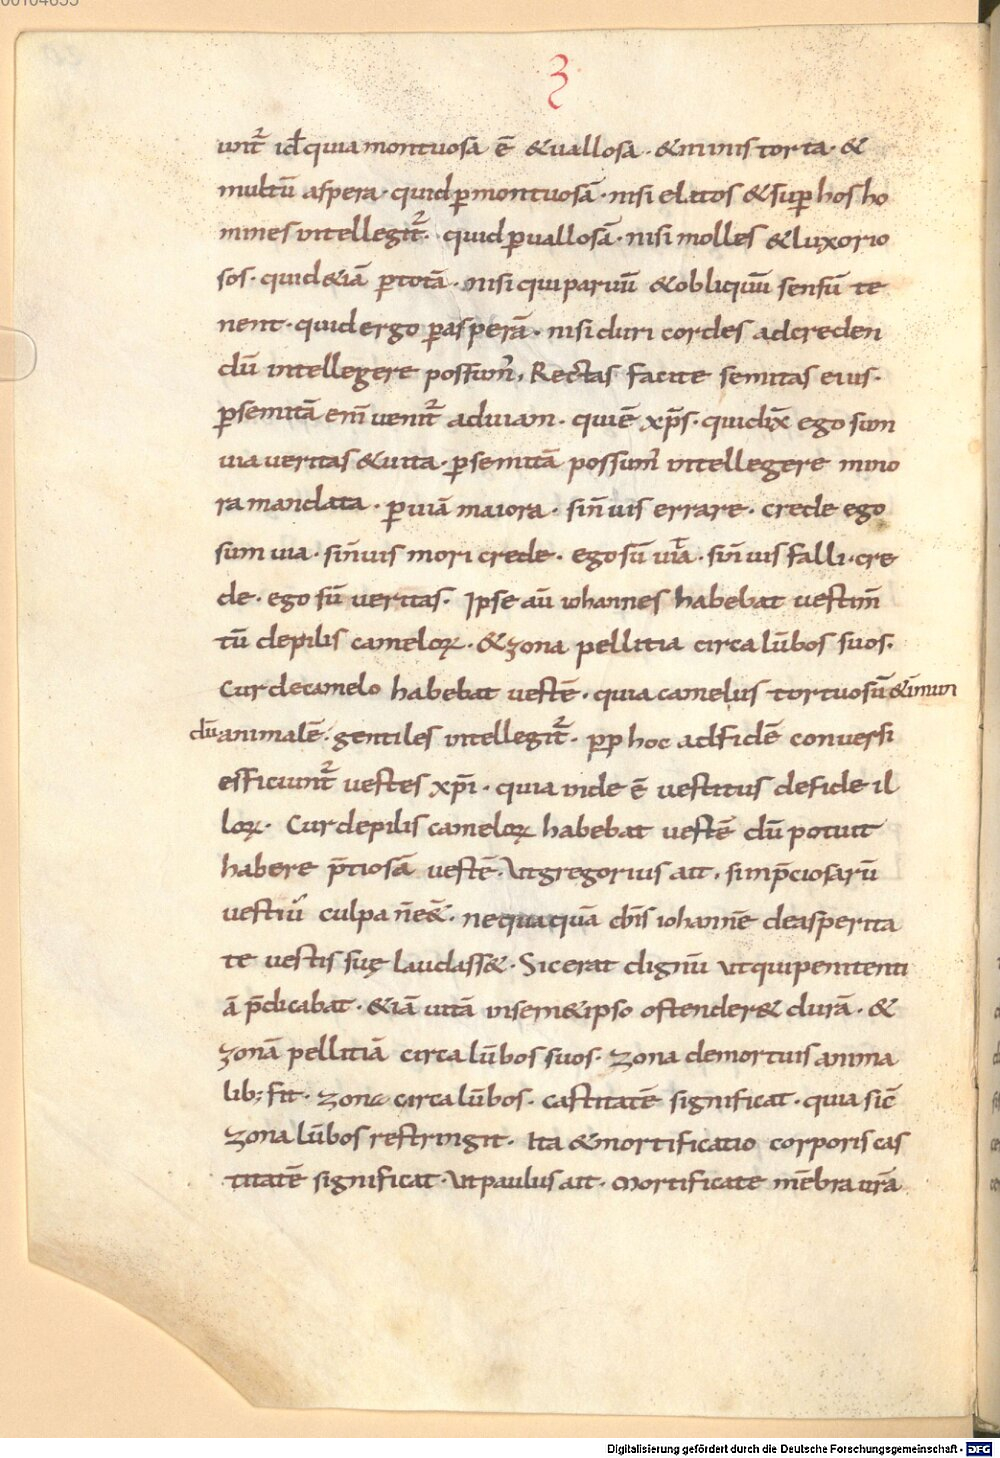 00104655
3
unt᷑ id̄ quia montuosa ē &uallosa · &nimis torta · &
multū aspera · quid ꝑmontuosā · nisi elatos &suꝑhos ho
mines intellegit᷑ · quid ꝑuallosā · nisi molles &luxorio
sos · quid &iā ꝑtotā · nisi qui paruū &obliquū sensū te
nent · quid ergo ꝑasperā · nisi duri cordes ad creden
dū intellegere possum᷒, Rectas facite semitas eius ·
ꝑsemitā eni᷒ uenit᷑ ad uiam · qui ē xp̄s · qui dix̄ ego sum
uia ueritas &uita · ꝑsemitā possum᷒ intellegere mino
ra mandata · ꝑuiā maiora · sin̄ uis errare · crede ego
sum uia · sin̄ uis mori crede · ego sū uita · sin̄ uis falli · cre
de · ego sū ueritas · Ipse aū iohannes habebat uestim̄
tū de pilis cameloꝝ · &zona pellitia circa lūbos suos ·
Cur de camelo habebat uestē · quia camelus tortuosū &īmun
dū animalē · gentiles intellegit᷑ · ꝑꝑ hoc ad fidē conuersi
efficiunt᷑ uestes xp̄i · quia inde ē uestitus de fide il
loꝝ · Cur de pilis cameloꝝ habebat uestē dū potuit
habere p̄tiosā uestē · Ut gregorius ait · sim p̄ciosarū
uestiū culpa n̄ e&̄ · nequaquā dn̄s iohannē de asperita
te uestis suę laudass& · Sic erat dignū ut qui penitenti
ā p̄dicabat · &iā uitā in sem&ipso ostender& durā · &
zonā pellitiā circa lūbos suos · zona de mortuis anima
lib; fit · zona circa lūbos · castitatē significat · quia sic̄
zona lūbos restringit · Ita &mortificatio corporis cas
titatē significat · Ut paulus ait · Mortificate mēbra ur̄a
Digitalisierung gefördert durch die Deutsche Forschungsgemeinschaft - DFG